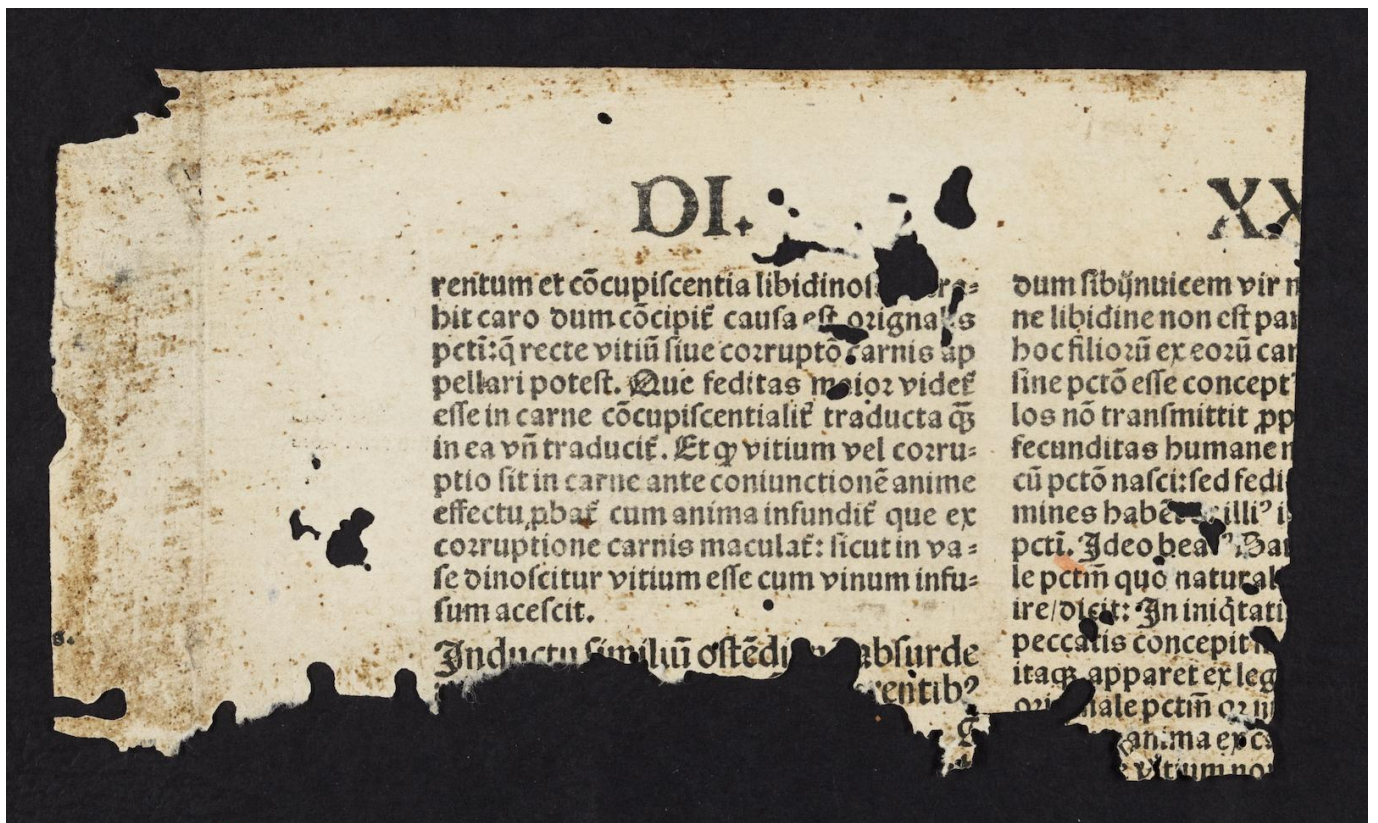 DI. XX
rentum et cōcupiſcentia libidinoſ
hit caro dum cōcipit᷑ cauſa eſt orignalis
pcti:q̄ recte vitiū ſiue corruptō carnis ap
pellari poteſt. Que feditas maior videt᷑
eſſe in carne cōcupiſcentialit᷑ traducta q̄ꝫ
in ea vn̄ traducit᷑. Et ꝙ vitium vel corru⸗
ptio ſit in carne ante coniunctionē anime
effectu ꝓbat᷑ cum anima infundit᷑ que ex
corruptione carnis maculat᷑: ſicut in va⸗
ſe dinoſcitur vitium eſſe cum vinum infu⸗
ſum aceſcit.
Inductu ſimiliū oſtēdi abſurde
rentibꝰ
dum ſibijnuicem vir n
ne libidine non eſt par
hoc filiorū ex eorū car
ſine pctō eſſe conceptꝰ
los nō tranſmittit ꝓp
fecunditas humane n
cū pctō naſci:ſed fedi
mines illiꝰ i
pcti. Ideo beatꝰ
le pctm̄ quo natural
ire/dicit: In iniq̄tati
peccatis concepit
itaqꝫ apparet ex leg
pctm̄
anima ex c
vitium non
s.